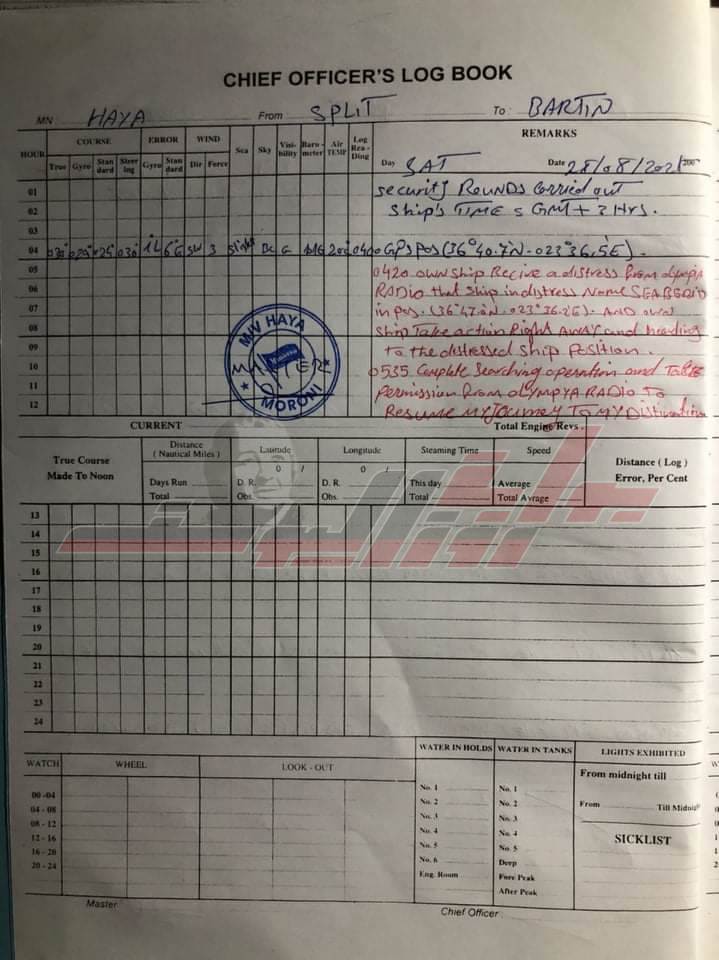 CHIEF OFFICER'S LOG BOOK
MN HAYA From SPLIT To BARTIN
HOUR COURSE ERROR WIND Sea Sky Visi-bility Baro-meter Air TEMP Log Rea-Ding REMARKS
True Gyro Stan dard Steer ing Gyro Stan dard Dir Force
Day SAT Date 28/08/2021
01 security Rounds Carried out
02 Ship's TIME = GMT + 3 Hrs.
03
04 030° SW 3 Slight 0400 GPS POS (36° 40.7'N - 023° 36.5'E).
05 0420 own ship Recive a distress from olympia
06 RADIO that ship in distress Name SEABERD
07 in pos. (36°47.0N - 023°36.2E). AND own
08 ship Take action Right Away and heading
09 to the distressed ship Position.
10 0535 Complete searching operation and Take
11 Permission from OLYMPYA RADIO To
12 Resume My Journey To MY Distination
M/V HAYA
MASTER
MORONI
CURRENT Total Engine Revs.
True Course Made To Noon
Distance ( Nautical Miles ) Latitude Longitude Steaming Time Speed Distance ( Log ) Error, Per Cent
0 / 0 /
Days Run D. R. D. R. This day / Average
Total Obs. Obs. Total Total Avrage
13
14
15
16
17
18
19
20
21
22
23
24
WATCH WHEEL LOOK - OUT WATER IN HOLDS WATER IN TANKS LIGHTS EXHIBITED
From midnight till
00 -04 No. 1 No. 1
04 - 08 No. 2 No. 2 From Till Midnight
08 - 12 No. 3 No. 3
12 - 16 No. 4 No. 4 SICKLIST
16 - 20 No. 5 No. 5
20 - 24 No. 6 Deep
Eng. Room Fore Peak
After Peak
Master Chief Officer